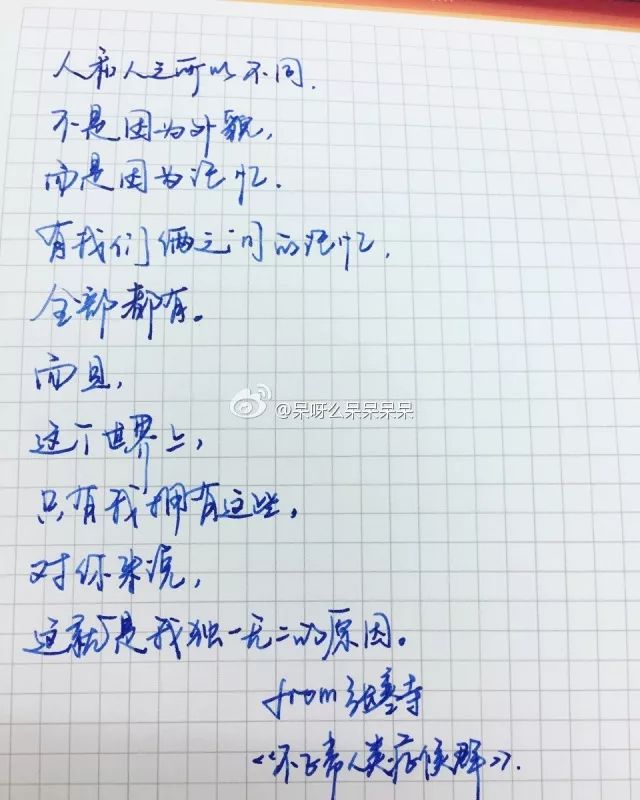 人和人之所以不同,
不是因为外貌,
而是因为记忆.
有我们俩之间的记忆,
全部都有。
而且,
@呆呀么呆呆呆呆
这个世界上,
只有我拥有这些。
对你来说,
这就是我独一无二的原因。
from 张寒寺
《不正常人类症候群》.